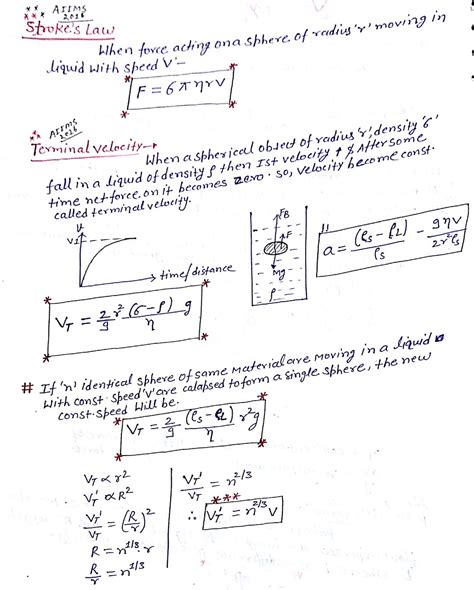 ** AIIMS
*** 2016
Stroke's Law
When force acting on a sphere of radius 'r' moving in
liquid with speed 'V' –
F = 6πηrv
** AIIMS
2026
Terminal velocity →
When a spherical object of radius 'r', density '6'
fall in a liquid of density ρ then Ist velocity ↑ & After some
time net force on it becomes zero. so, velocity become const.
called terminal velocity.
V
VT
→ time/distance
FB
F
Mg
ρ
a = (ρs - ρL)/ρs - 9ηv/2r²ρs
VT = 2/9 r² (σ - ρ)/η g
# If 'n' identical sphere of same material are moving in a liquid
with const. speed 'v' are calapsed to form a single sphere, the new
const. speed will be.
VT = 2/9 (ρs - ρL)/η r²g
VT ∝ r²
VT' ∝ R²
VT'/VT = (R/r)²
R = n^1/3 · r
R/r = n^1/3
VT'/VT = n^2/3
***
∴ VT' = n^2/3 V